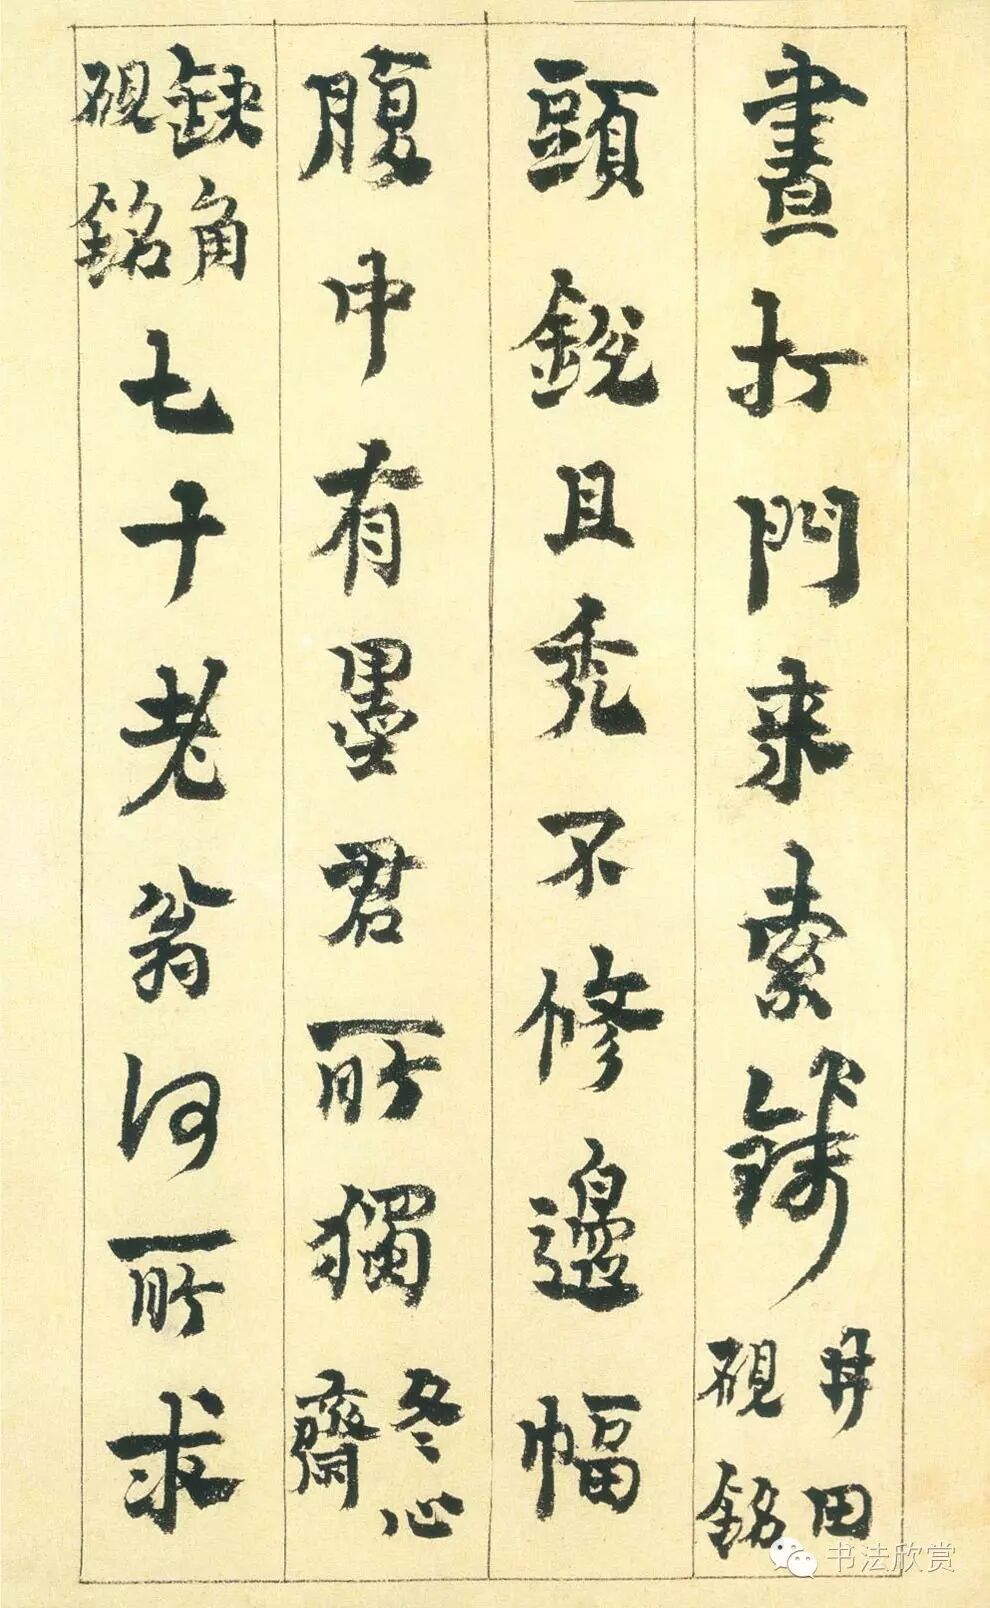 晝打門來索錢井田硯銘
頭銳且禿不修邊幅
腹中有墨君所獨冬心齋
缺角硯銘七十老翁何所求
书法欣赏